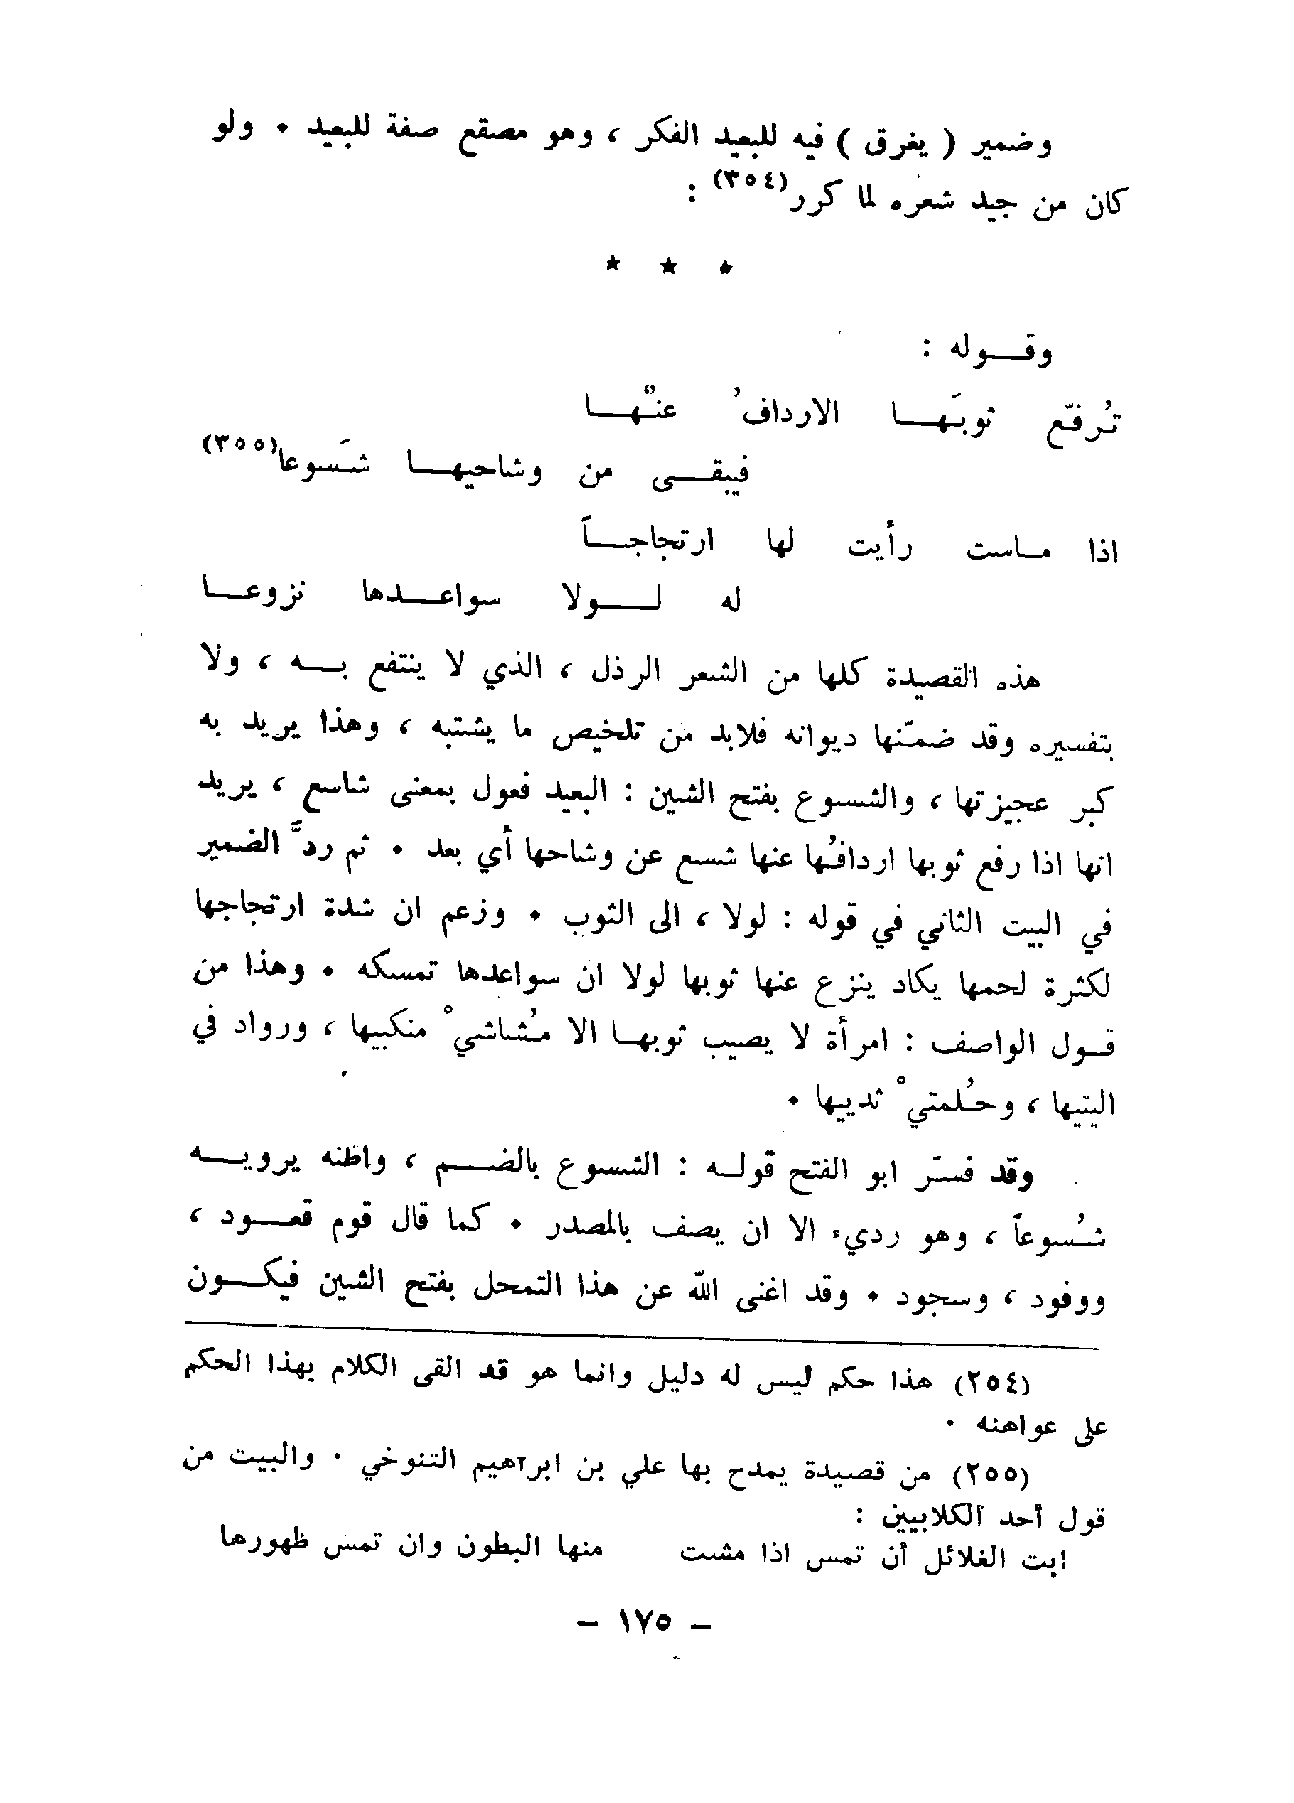 وضمير ( يغرق ) فيه للبعيد الفكر ، وهو مصقع صفة للبعيد . ولو
كان من جيد شعره لما كرر(٣٥٤) :
* * *
وقــوله :
تُرفّع ثوبَهــا الاردافُ عنْهــا
فيبقــى من وشاحيهــا شَسوعا(٣٥٥)
اذا مــاست رأيت لها ارتجاجــاً
له لــولا سواعــدها نزوعــا
هذه القصيدة كلها من الشعر الرذل ، الذي لا ينتفع بــه ، ولا
بتفسيره وقد ضمّنها ديوانه فلابد من تلخيص ما يشتبه ، وهذا يريد به
كبر عجيزتها ، والشسوع بفتح الشين : البعيد فعول بمعنى شاسع ، يريد
انها اذا رفع ثوبها اردافُها عنها شسع عن وشاحها أي بعد . ثم ردَّ الضمير
في البيت الثاني في قوله : لولا ، الى الثوب . وزعم ان شدة ارتجاجها
لكثرة لحمها يكاد ينزع عنها ثوبها لولا ان سواعدها تمسكه . وهذا من
قــول الواصف : امرأة لا يصيب ثوبهــا الا مُشاشيْ منكبيها ، ورواد في
اليتيها ، وحُلمتيْ ثدييها .
وقد فسّر ابو الفتح قولــه : الشسوع بالضــم ، واظنه يرويــه
شُسوعاً ، وهو رديء الا ان يصف بالمصدر . كما قال قوم قعــود ،
ووفود ، وسجود . وقد اغنى الله عن هذا التمحل بفتح الشين فيكــون
(٢٥٤) هذا حكم ليس له دليل وانما هو قد القى الكلام بهذا الحكم
على عواهنه .
(٢٥٥) من قصيدة يمدح بها علي بن ابراهيم التنوخي . والبيت من
قول أحد الكلابيين :
ابت الغلائل أن تمس اذا مشت منها البطون وان تمس ظهورها
– ١٧٥ –